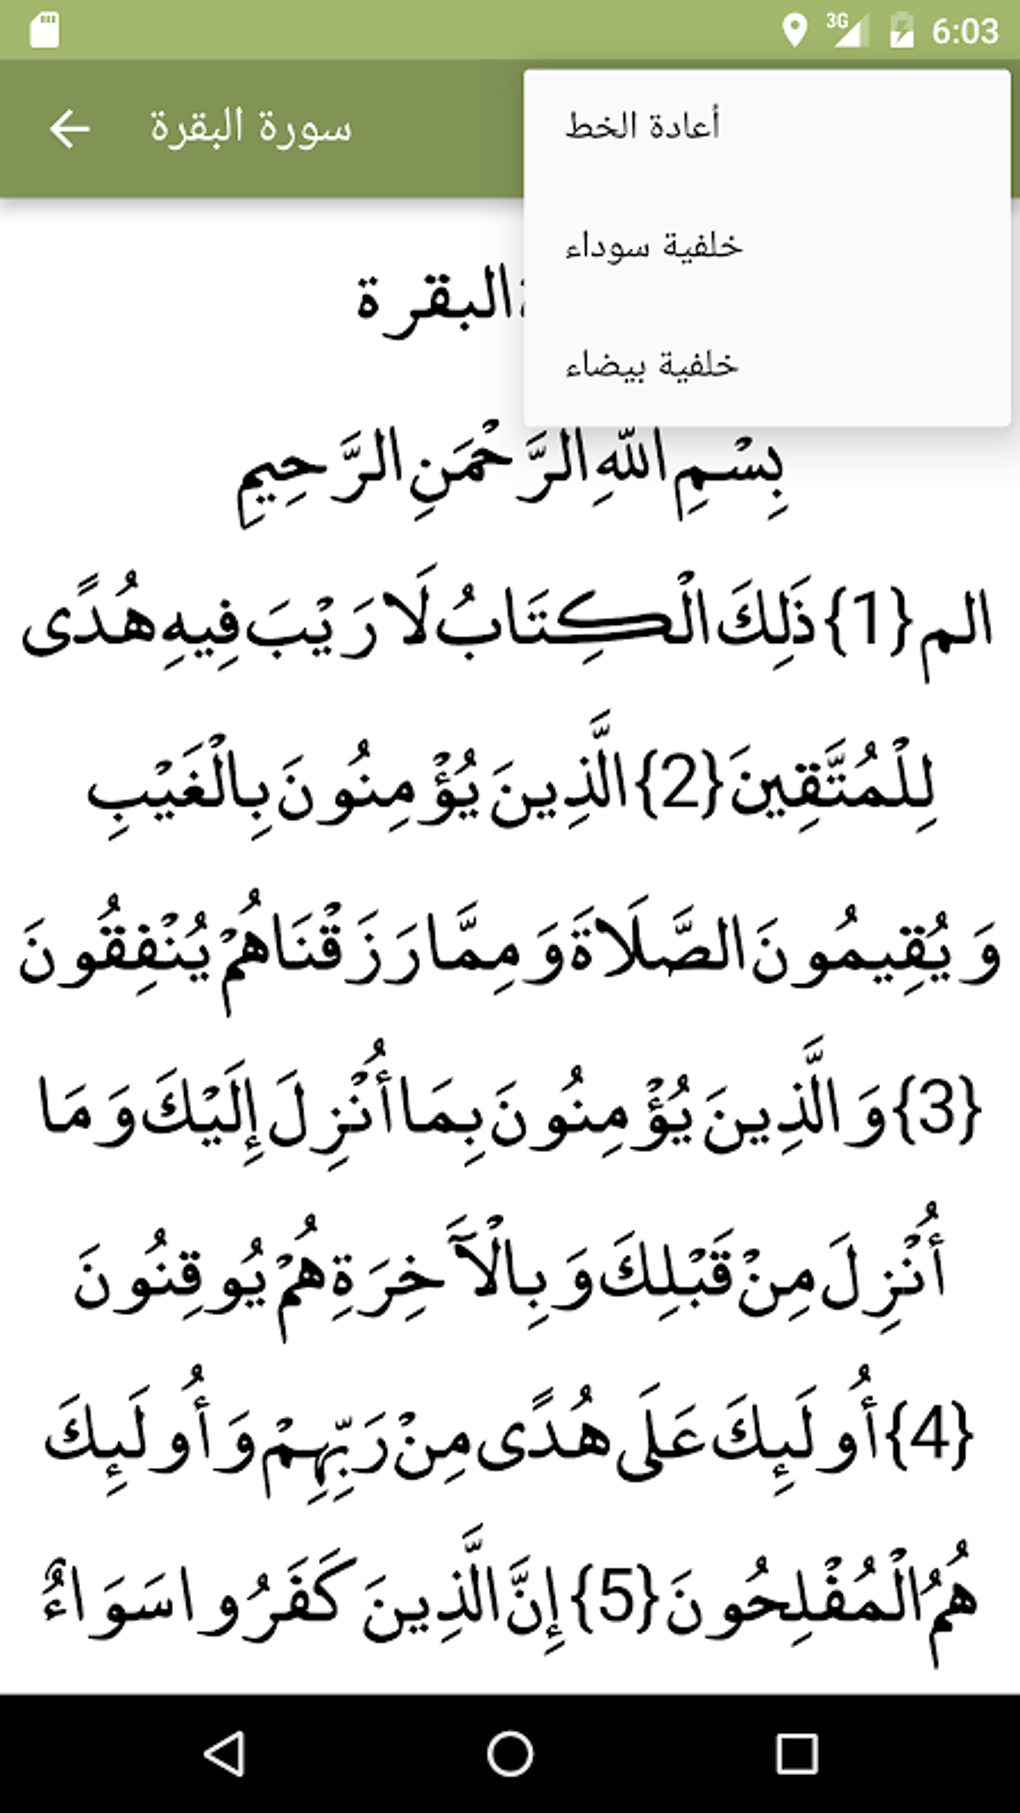 3G 6:03
سورة البقرة
أعادة الخط
خلفية سوداء
خلفية بيضاء
البقرة
بِسْمِ اللّهِ الرَّحْمَنِ الرَّحِيمِ
الم {1} ذَلِكَ الْكِتَابُ لَا رَيْبَ فِيهِ هُدًى
لِلْمُتَّقِينَ {2} الَّذِينَ يُؤْمِنُونَ بِالْغَيْبِ
وَيُقِيمُونَ الصَّلَاةَ وَمِمَّا رَزَقْنَاهُمْ يُنْفِقُونَ
{3} وَالَّذِينَ يُؤْمِنُونَ بِمَا أُنْزِلَ إِلَيْكَ وَمَا
أُنْزِلَ مِنْ قَبْلِكَ وَبِالْآَخِرَةِ هُمْ يُوقِنُونَ
{4} أُولَئِكَ عَلَى هُدًى مِنْ رَبِّهِمْ وَأُولَئِكَ
هُمُ الْمُفْلِحُونَ {5} إِنَّ الَّذِينَ كَفَرُوا سَوَاءٌ